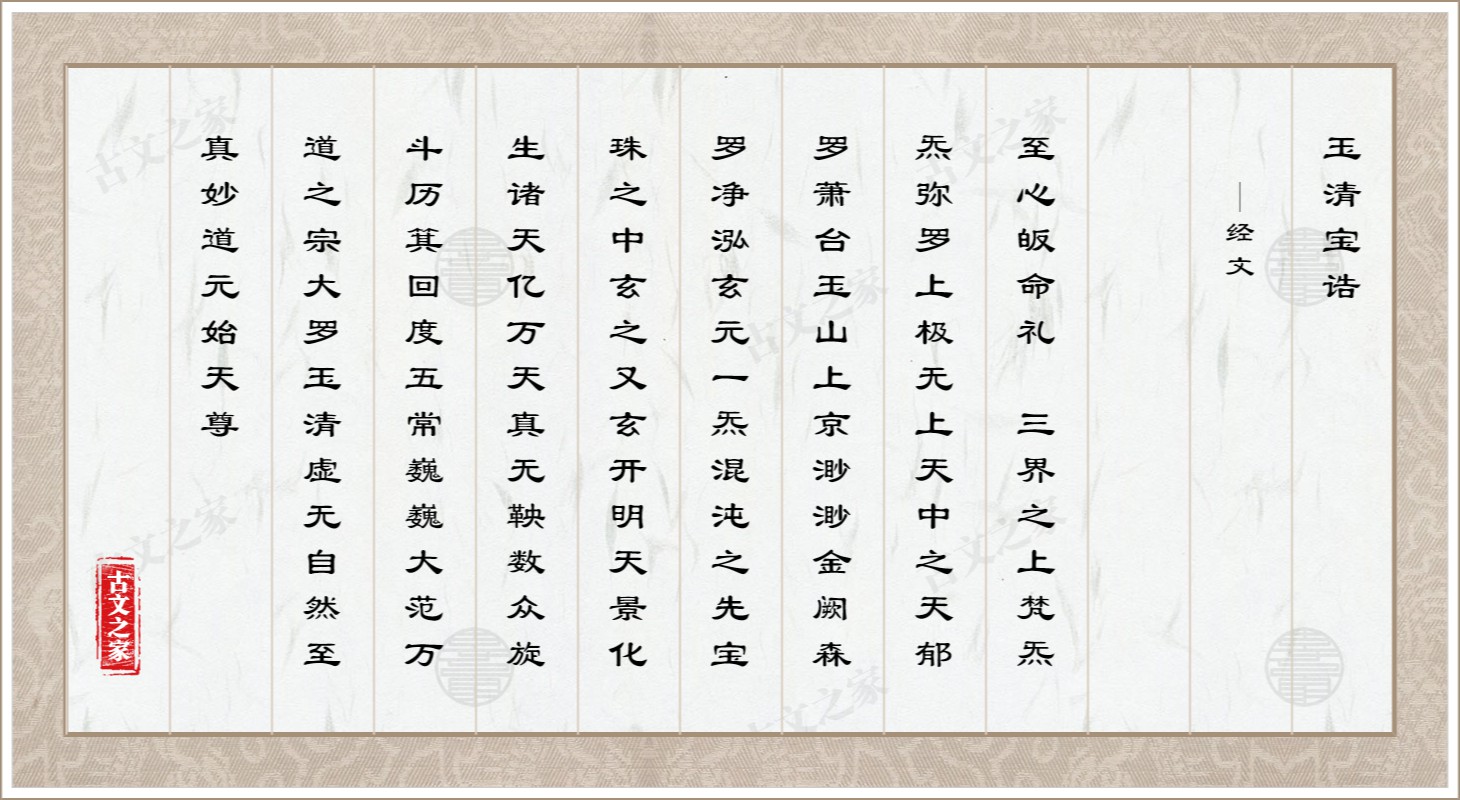 玉清宝诰
——经文
至心皈命礼　三界之上梵炁
炁弥罗上极无上天中之天郁
罗萧台玉山上京渺渺金阙森
罗净泓玄元一炁混沌之先宝
珠之中玄之又玄开明天景化
生诸天亿万天真无鞅数众旋
斗历箕回度五常巍巍大范万
道之宗大罗玉清虚无自然至
真妙道元始天尊
古文之家